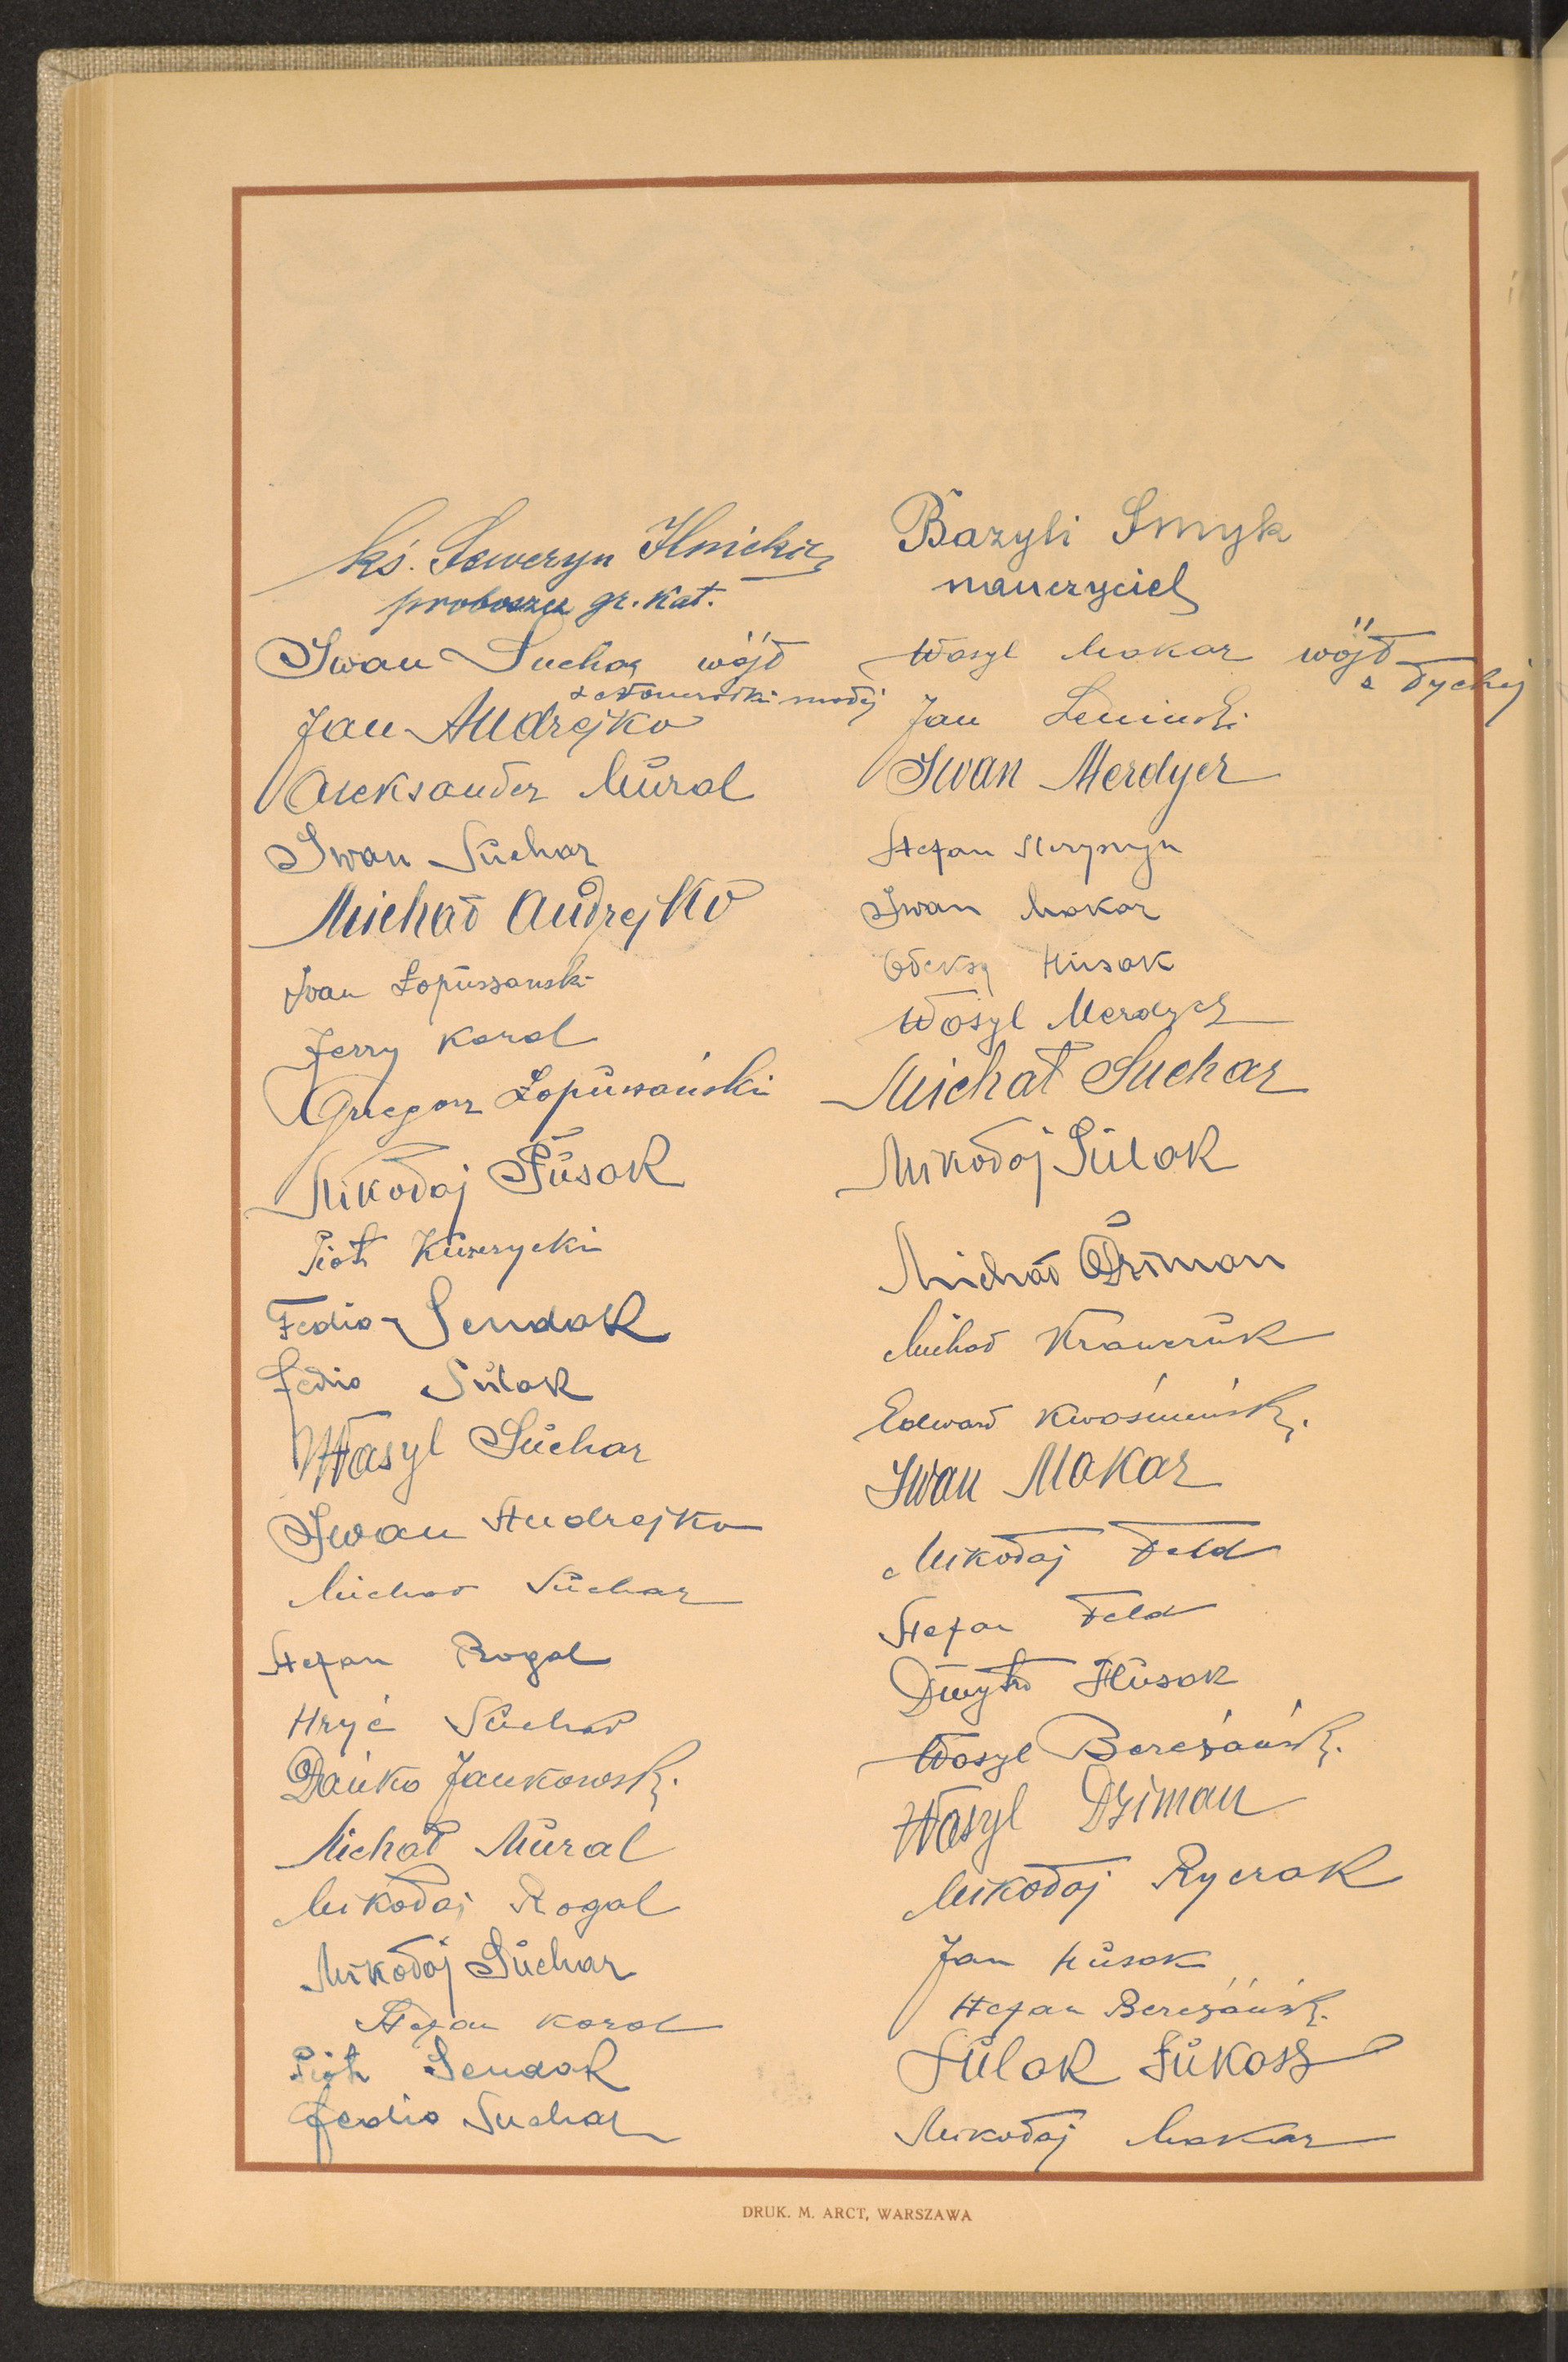 ks. Seweryn Ilnicki
proboszcz gr. kat.
Iwan Suchar wójt
z Łomnadki małej
Jan Andrejko
Aleksander Mural
Iwan Suchar
Michał Andrejko
Iwan Łopuszanski
Jerzy Karol
Grzegorz Łopuszański
Mikołaj Husak
Piotr
Fedio Sendak
Fedio Sulak
Wasyl Suchar
Iwan Andrejko
Michał Suchar
Stefan Rogal
Hryć Suchar
Dańko Jankowski
Michał Mural
Mikołaj Rogal
Mikołaj Suchar
Stefan Karol
Piotr Sendak
Fedio Suchar
Bazyli Smyk
nauczyciel
Wasyl Makar wójt
z Tychej
Jan Leninski
Iwan Merdyer
Stefan
Iwan Makar
Ołeksy Husak
Wasyl Merdyer
Michał Suchar
Mikołaj Sulak
Michał Dziman
Michał Krawczuk
Edward Kwaśninski
Iwan Makar
Mikołaj Feld
Stefan Feld
Dmytro Husak
Wasyl Bereżański
Wasyl Dziman
Mikołaj Ryczak
Jan Husak
Stefan Bereżański
Sulak Łukasz
Mikołaj Makar
DRUK. M. ARCT, WARSZAWA